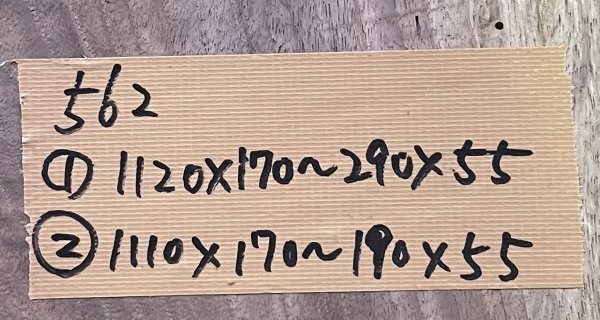 562
① 1120×170~290×55
② 1110×170~190×55